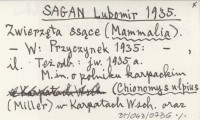 SAGAN Lubomir 1935.
Zwierzęta ssące (Mammalia).
- W: Przyczynek 1935: - ,
il. Też odb.: jw. 1935 a.
M. in. o polniku karpackim
(Chionomys ulpius
(Miller) w Karpatach Wsch. oraz